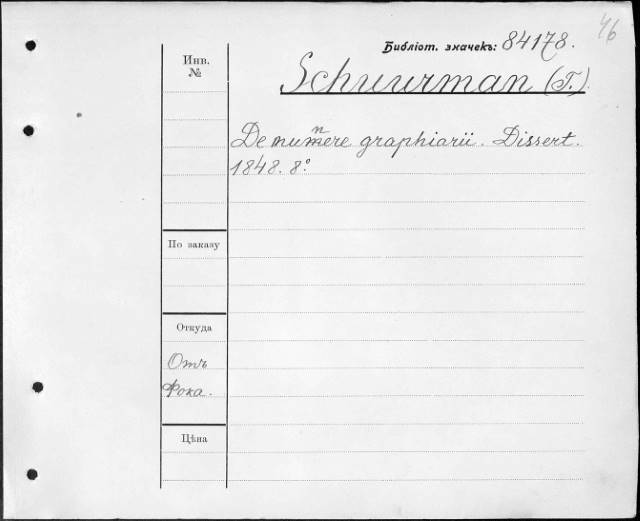 46
Библіот. значекъ: 84178.
Инв.
№
Schuurman (T.)
De numere graphiarii. Dissert.
n
1848. 8º.
По заказу
Откуда
Отъ
Фока.
Цѣна